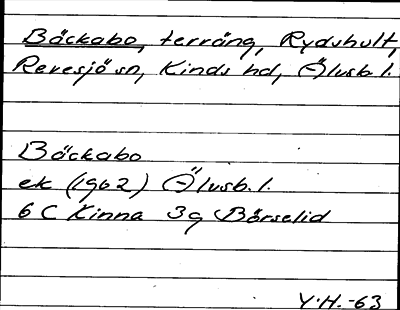 Bäckabo, terräng, Rydshult,
Revesjö sn, Kinds hd, Älvsb. l.
Bäckabo
ek (1962) Älvsb. l.
6 C Kinna 3g Bårselid
Y.H. -63